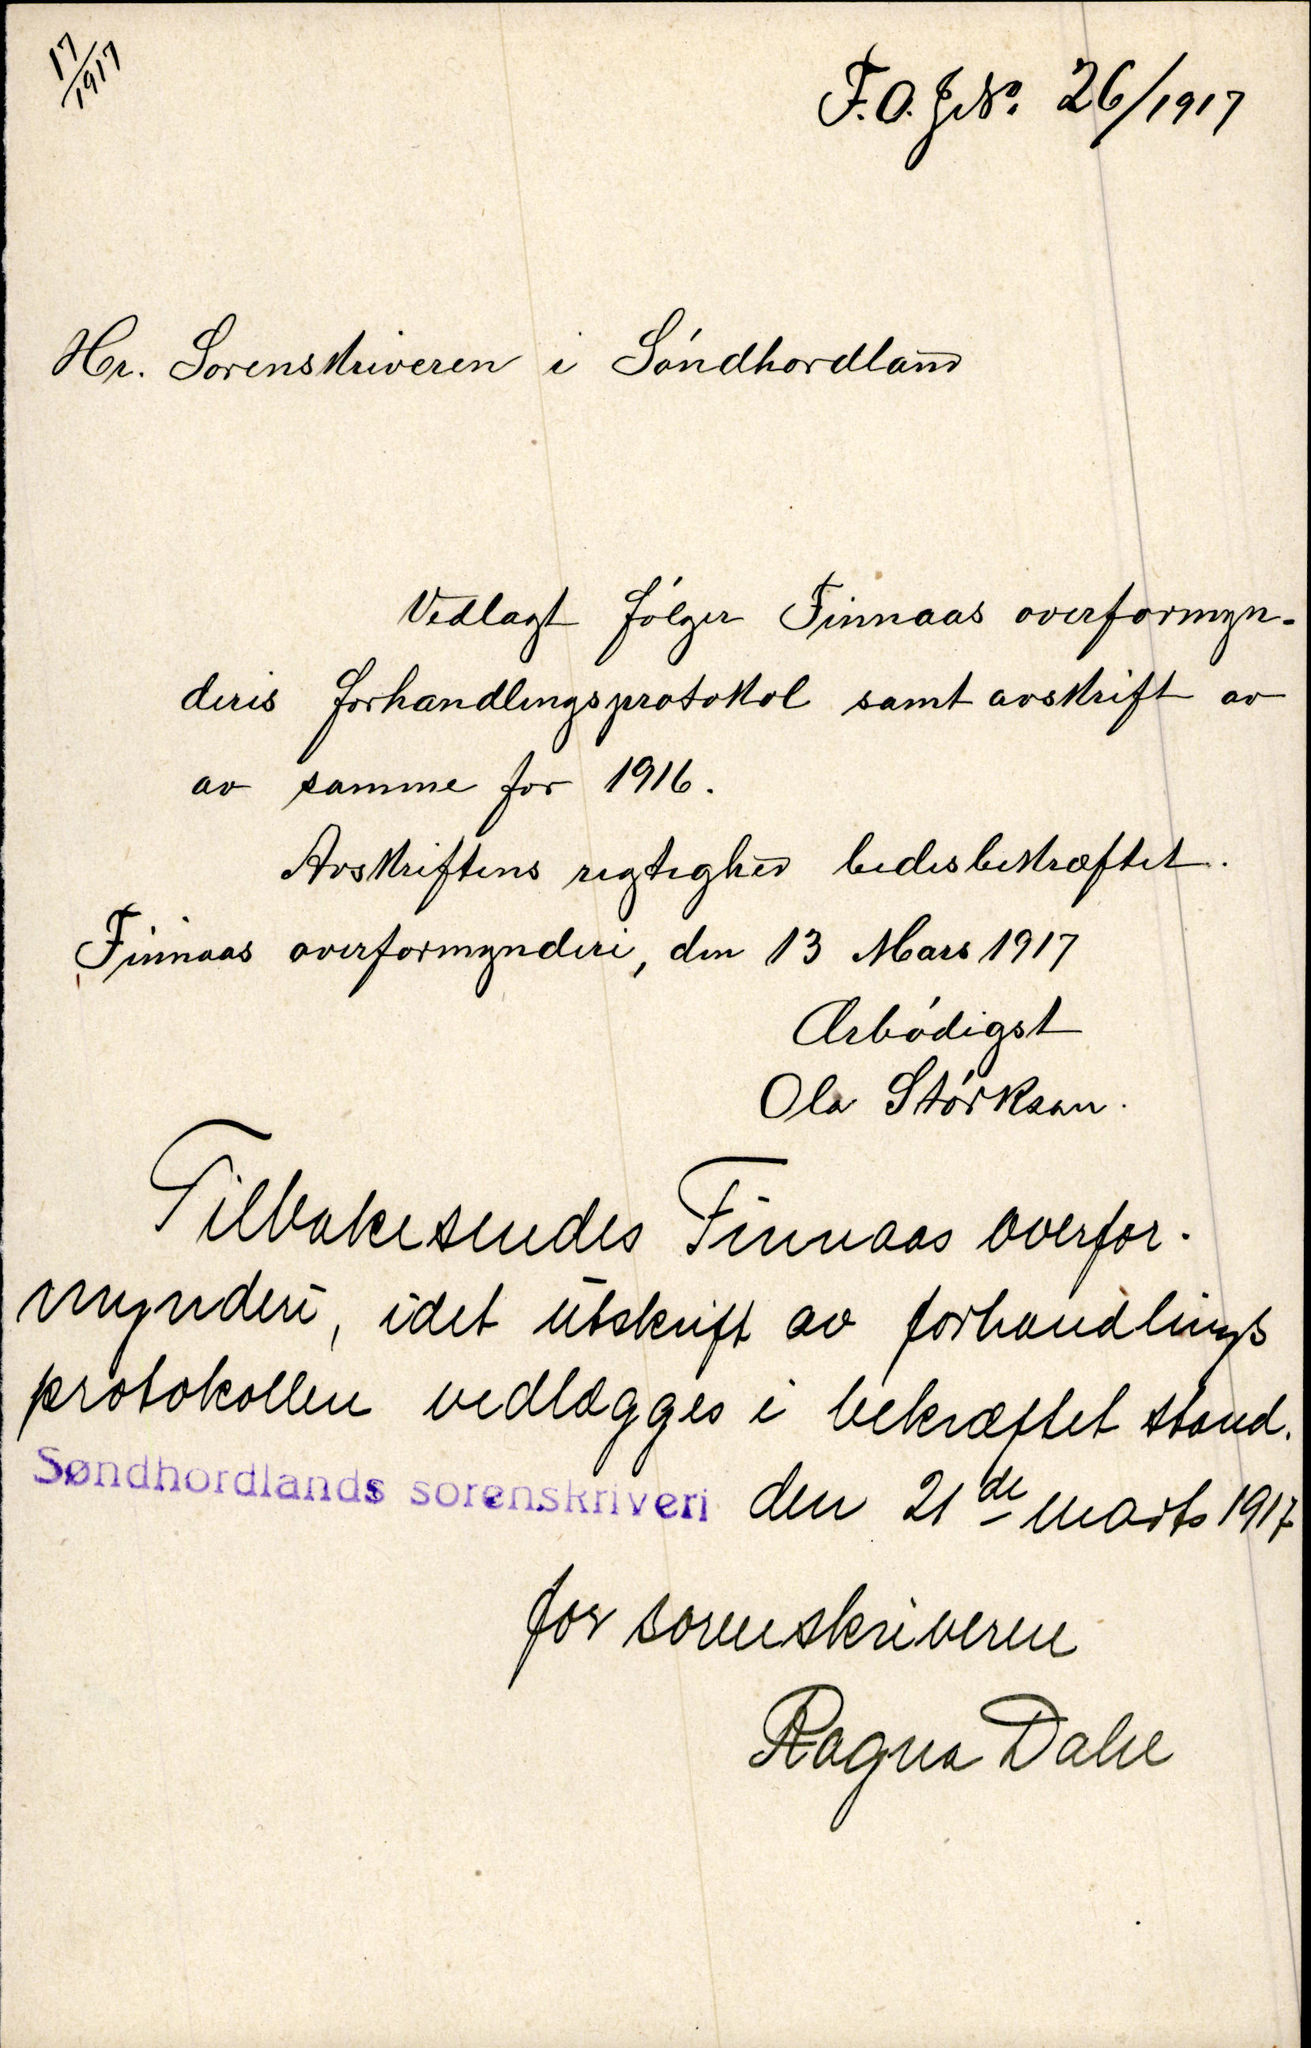 17/1917
F.O.J.No. 26/1917
Hr. Sorenskriveren i Søndhordland
Vedlagt følger Finnaas overformyn-
deris forhandlingsprotokol samt avskrift av
av samme for 1916.
Avskriftens rigtighed bedes bekræftet.
Finnaas overformynderi, den 13 Mars 1917
Ærbødigst
Ola Størksen.
Tilbakesendes Finnaas overfor-
mynderi, idet utskrift av forhandlings
protokollen vedlægges i bekræftet stand.
Søndhordlands sorenskriveri den 21de marts 1917
for sorenskriveren
Ragna Dahl